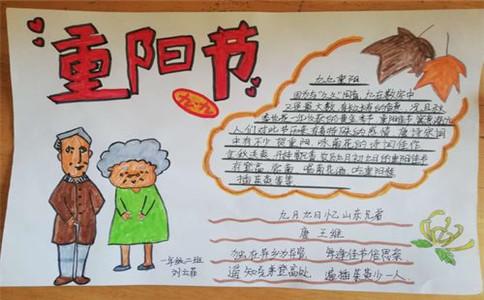 重阳节
九.九
九九重阳
因为与"久久"同音,九在数字中
又是最大数,有长久长寿的含意,况且秋季
也是一年收获的黄金季节 重阳佳节 寓意深远
人们对此节历来有着特殊的感情 唐诗宋词
中有不少贺重阳,咏菊花的诗词佳作
农历九月初九日的重阳佳节
插茱萸等等
九月九日忆山东兄弟
唐 王维
独在异乡为异客 每逢佳节倍思亲
遥知兄弟登高处 遍插茱萸少一人.
一年级二班